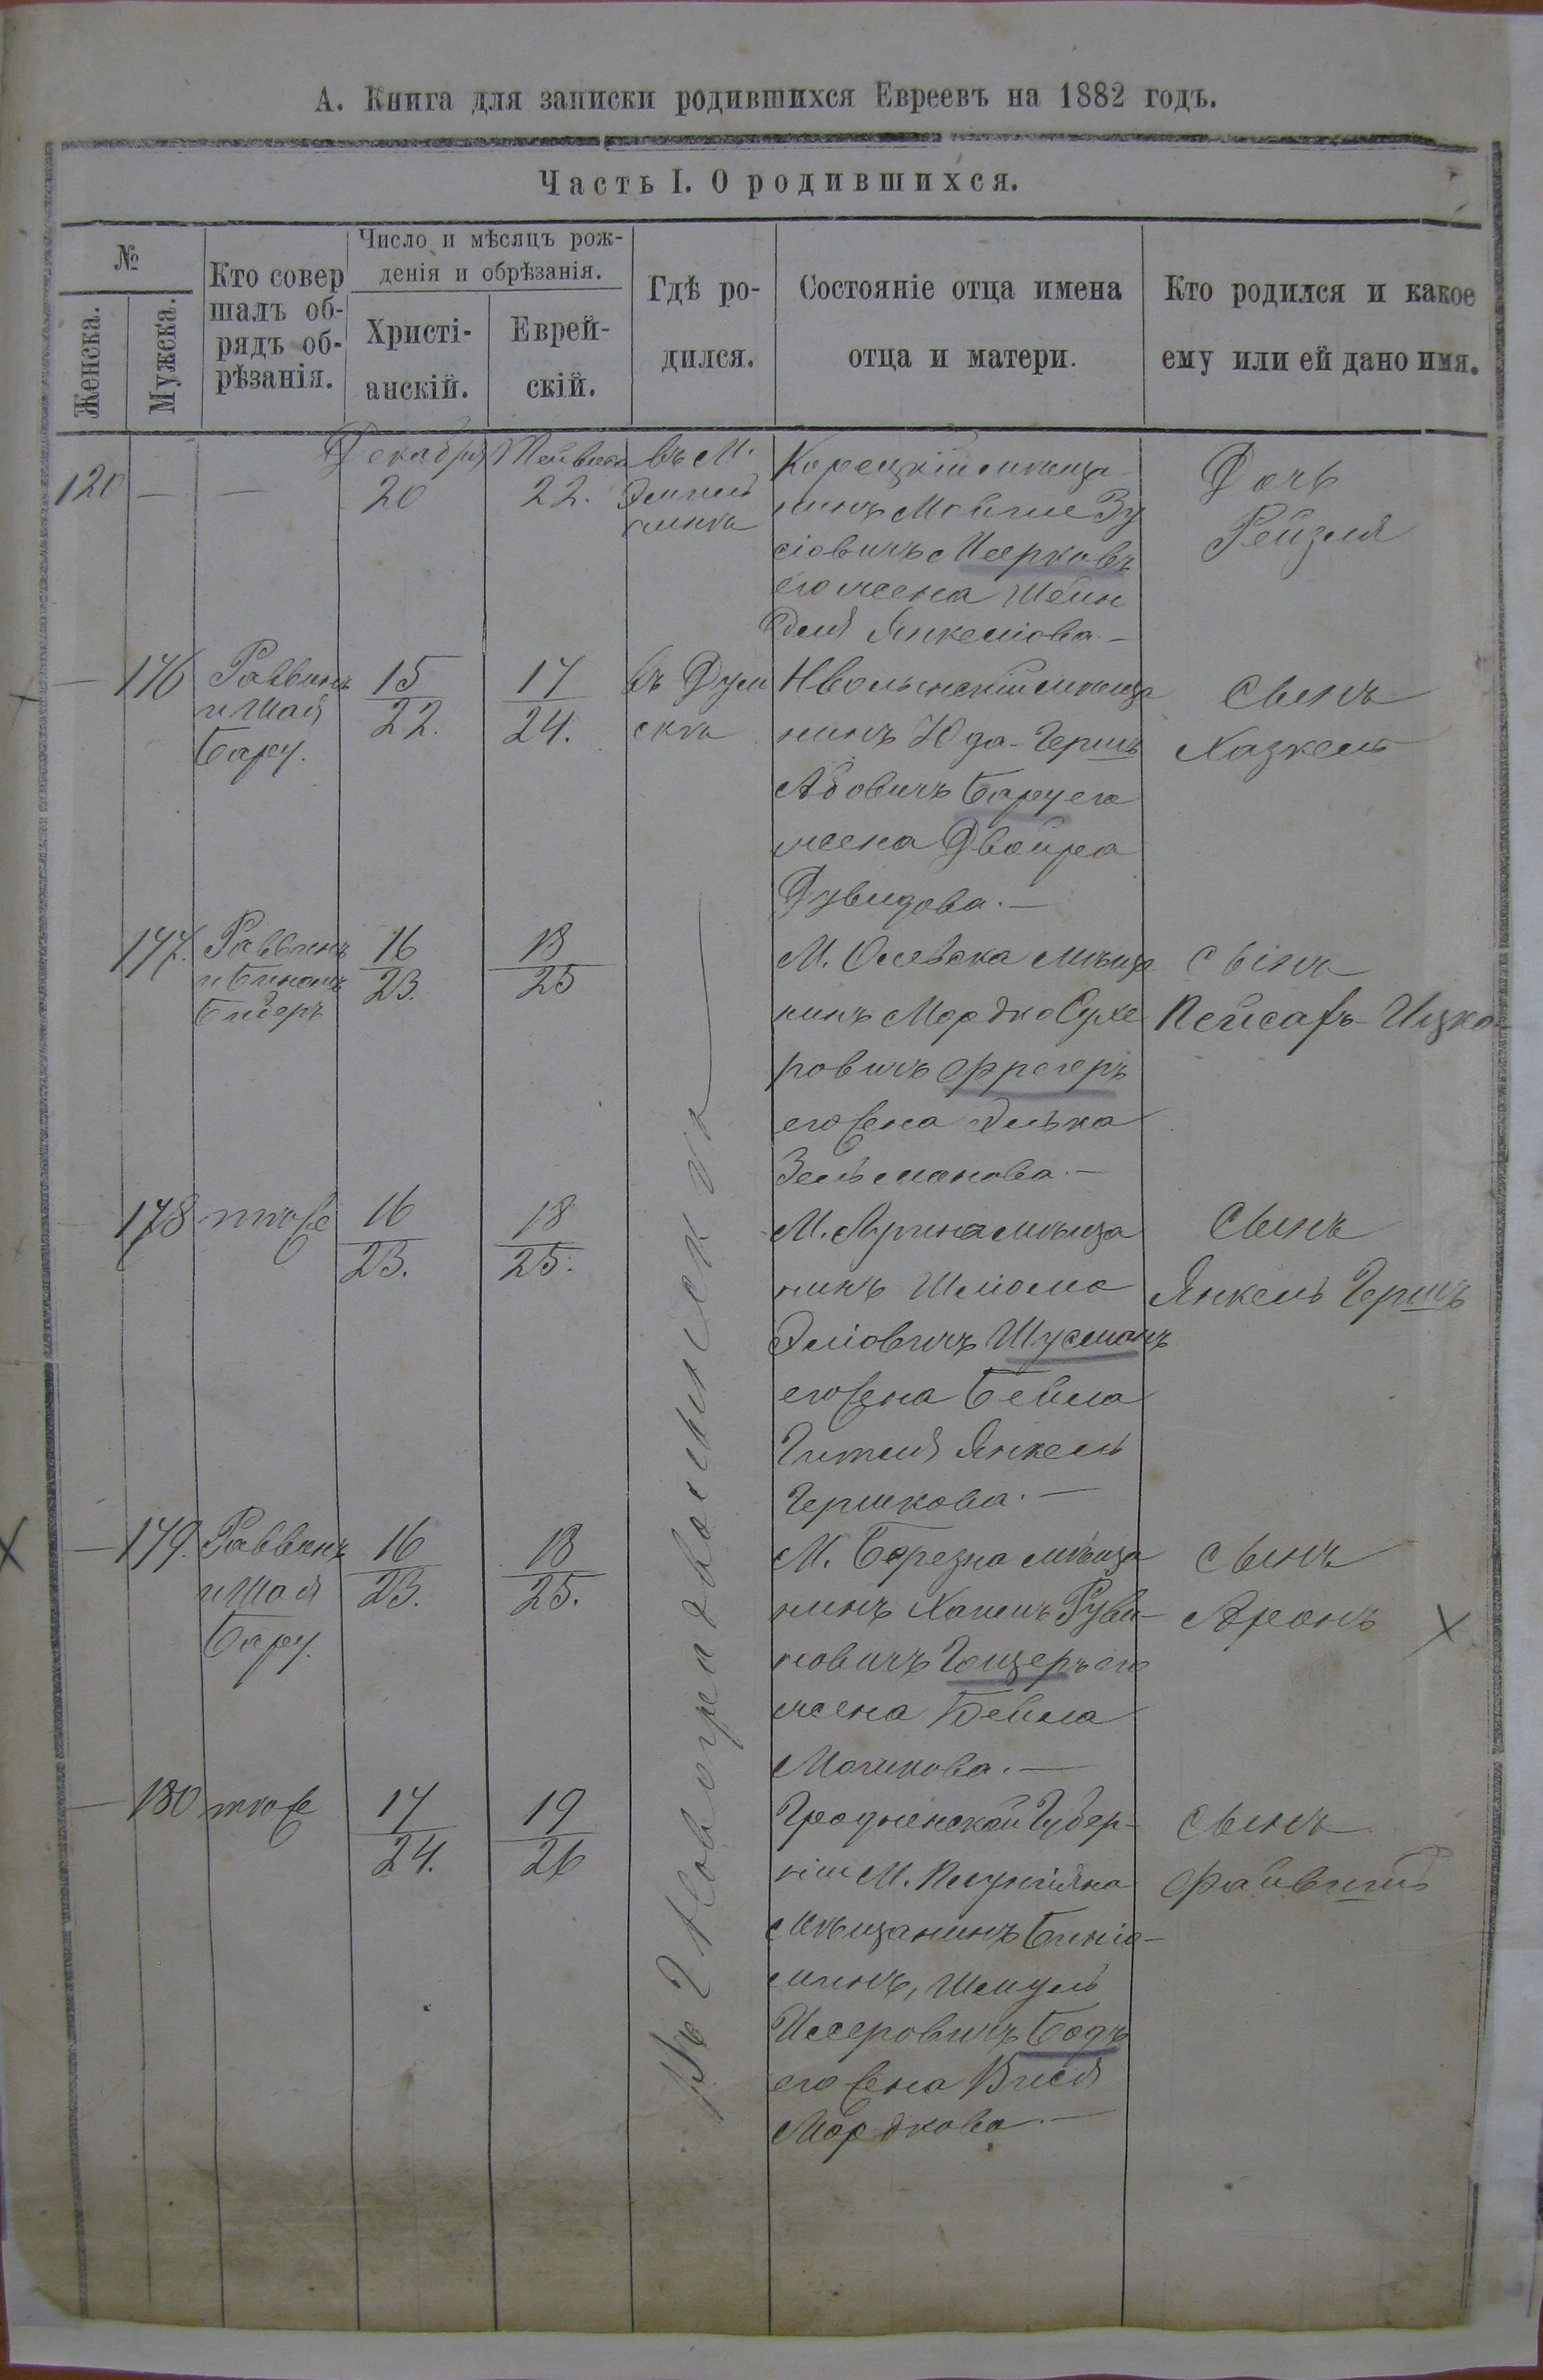 А. Книга для записки родившихся Евреевъ на 1882 годъ.
Часть I. О родившихся.
№
Женска.
Мужска.
Кто совер
шалъ об-
рядъ об-
рѣзанія.
Число и мѣсяцъ рож-
денія и обрѣзанія.
Христі-
анскій.
Еврей-
скій.
Гдѣ ро-
дился.
Состояніе отца имена
отца и матери.
Кто родился и какое
ему или ей дано имя.
120
—
—
Декабря
20
Тейвеса
22.
въ М.
Эмиль
чинѣ
Корецкій мѣща
нинъ Мойше Зу
сіовичъ
его жена Шейн
для Янкеліова —
Дочь
Рейзля
— 176
Раввинъ
и Шая
Бару.
15
22.
17
24.
въ
скѣ
НВолынскій мѣща
нинъ Юда-Гершъ
Абовичъ Бару его
жена Двойра
Дувидова. —
Сынъ
Хазкель
177.
Раввинъ
и
Бидеръ
16
23.
18
25
Въ Г. Новоградволынскѣ
М. Олевска мѣща
нинъ Мордко Сухе
ровичъ Фрегеръ
его жена Элька
Зельманова. —
Сынъ
Пейсахъ-Ицко
178
тоже
16
23.
18
25.
М. мѣща
нинъ Шліома
Эліовичъ Шусманъ
его жена Бейла
Гитля Янкель
Гершкова. —
Сынъ
Янкель Гершъ
— 179.
Раввинъ
и Шая
Бару.
16
23.
18
25.
М. Березна мѣща
нинъ Хаимъ Руви-
новичъ Гощеръ его
жена Бейла
Мошкова. —
Сынъ
Аронъ
— 180
тоже
17
24.
19
26
Гродненской Губер-
ніи М.
мѣщанинъ Биніо-
минъ, Шмуль
Исеровичъ Бодъ
его жена Вися
Мордкова —
Сынъ
Файвишъ